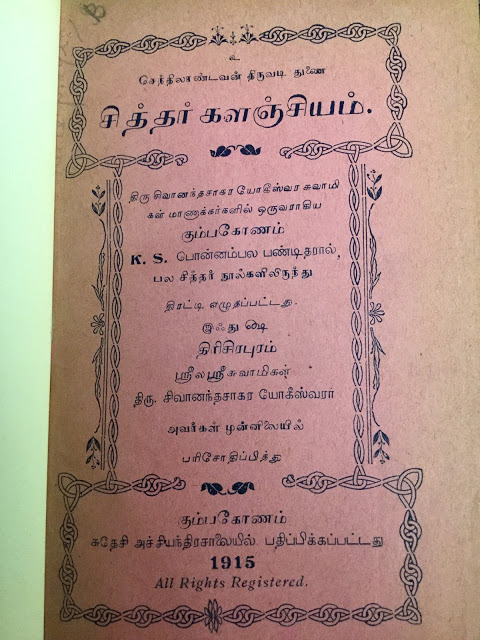 உ
செந்திலாண்டவன் திருவடி துணை
சித்தர் களஞ்சியம்.
திரு சிவானந்தசாகர யோகீஸ்வர சுவாமி
கள் மாணாக்கர்களில் ஒருவராகிய
கும்பகோணம்
K. S. பொன்னம்பல பண்டிதரால்,
பல சித்தர் நூல்களிலிருந்து
திரட்டி எழுதப்பட்டது.
இஃது ௸
திரிசிரபுரம்
ஸ்ரீலஸ்ரீ சுவாமிகள்
திரு. சிவானந்தசாகர யோகீஸ்வரர்
அவர்கள் முன்னிலையில்
பரிசோதிப்பித்து
கும்பகோணம்
சுதேசி அச்சியந்திரசாலையில் பதிப்பிக்கப்பட்டது
1915
All Rights Registered.